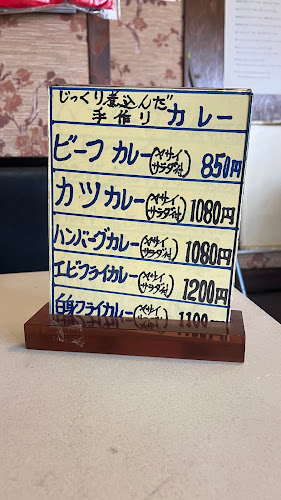 じっくり煮込んだ
手作り カレー
ビーフ カレー(ヤサイサラダ付) 850円
カツカレー(ヤサイサラダ付) 1080円
ハンバーグカレー(ヤサイサラダ付) 1080円
エビフライカレー(ヤサイサラダ付) 1200円
白身フライカレー(ヤサイ 1100円